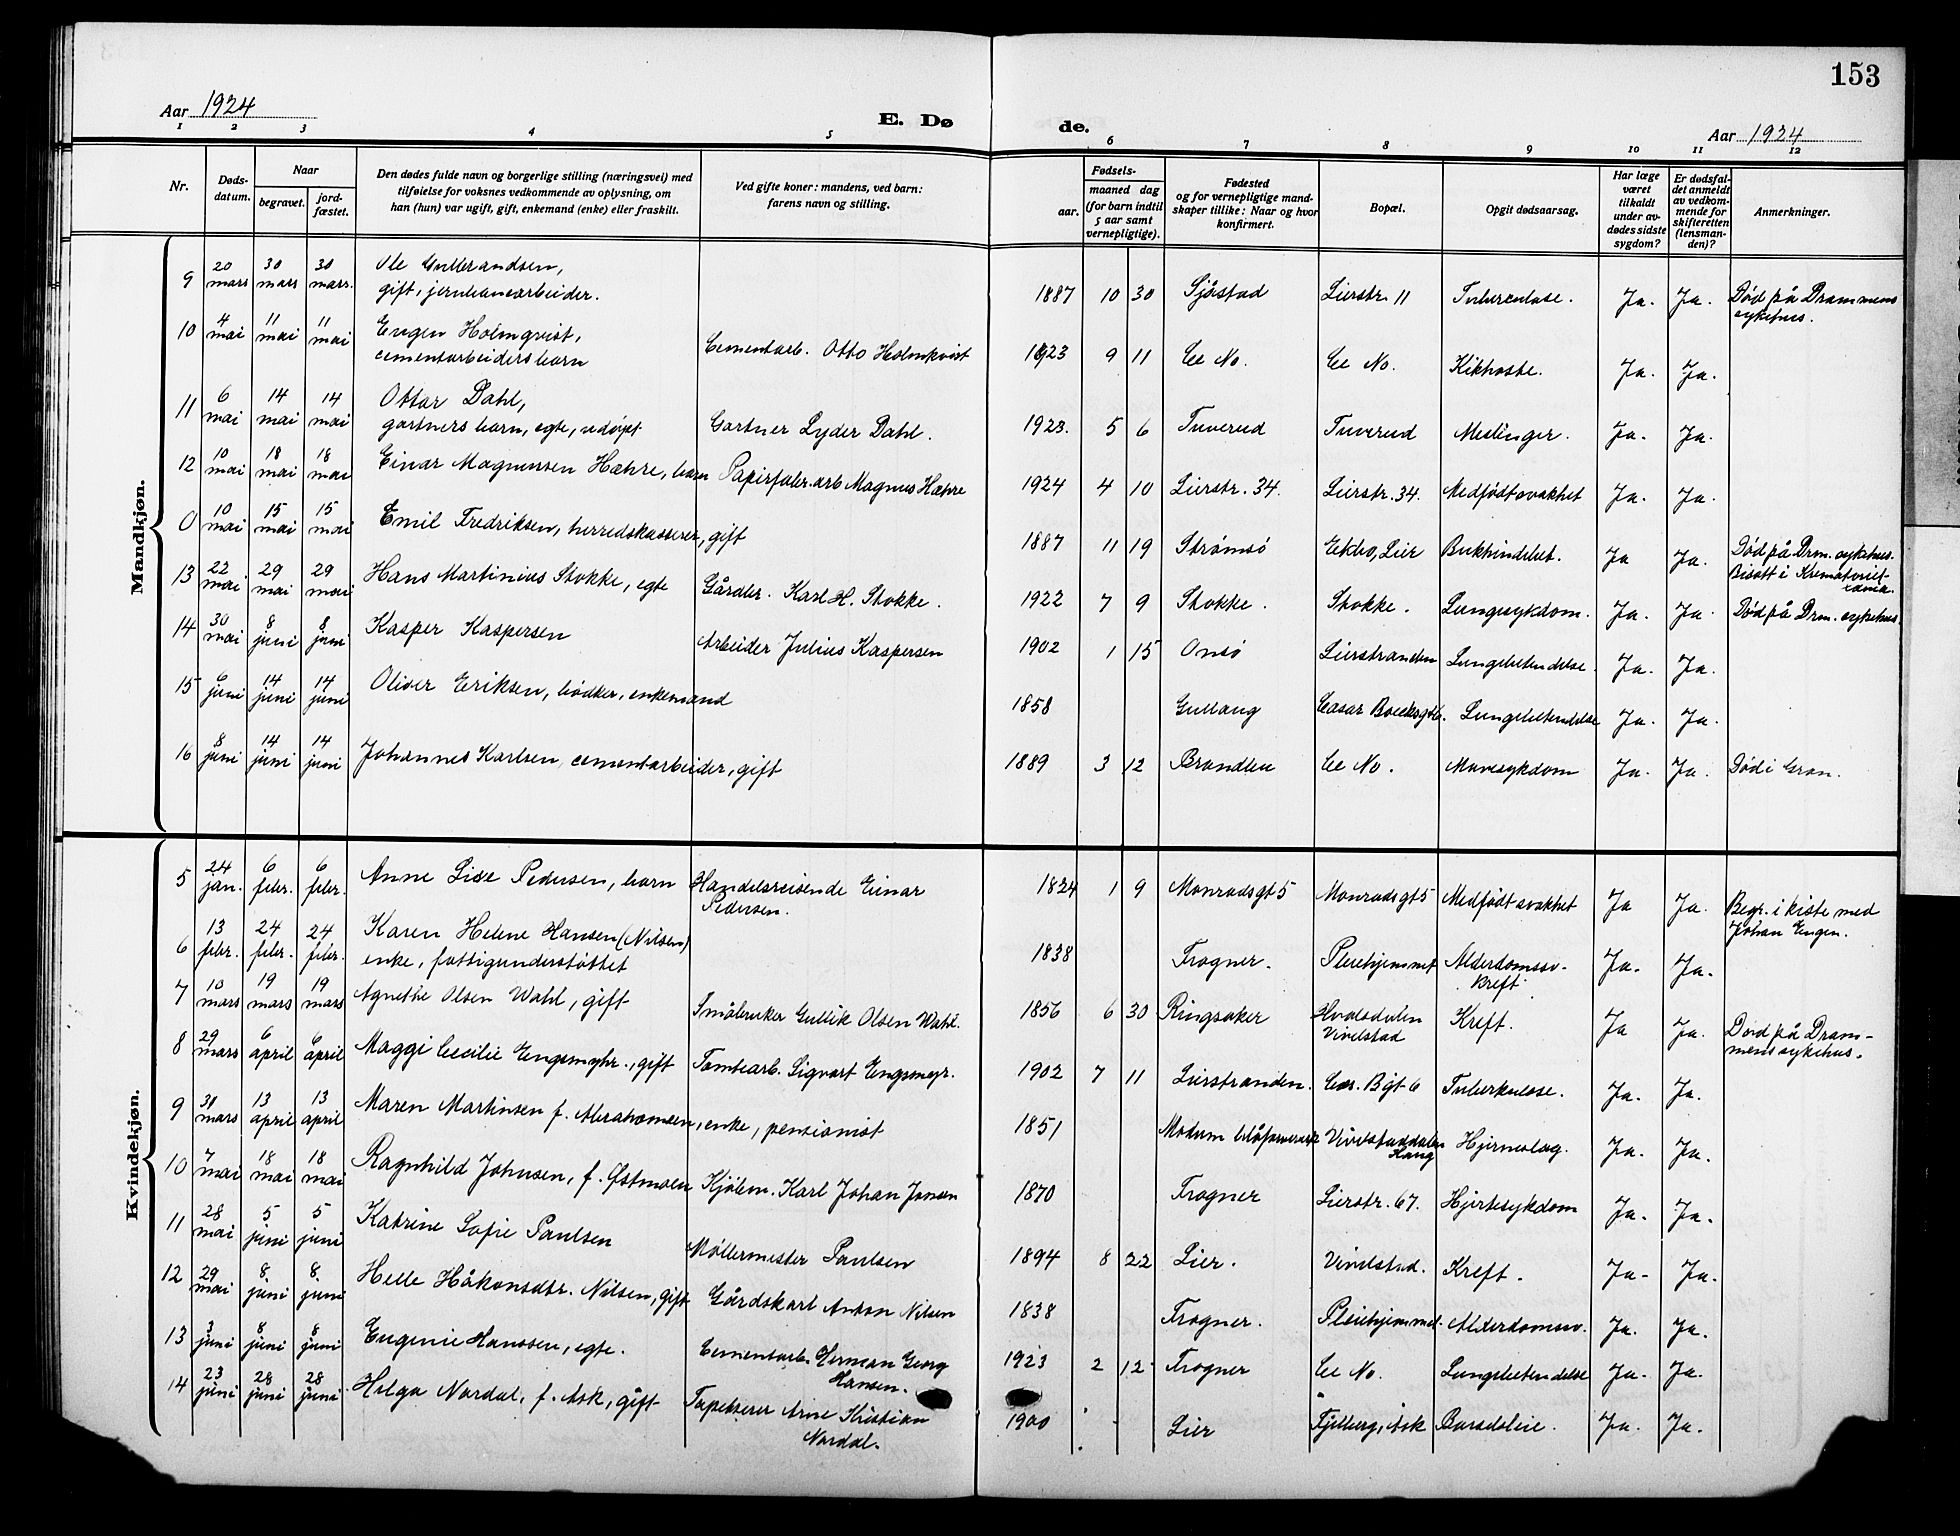 153
Aar 1924
E. Døde.
Aar 1924
1 2 3 4 5 6 7 8 9 10 11 12
Nr.
Døds-
datum.
Naar
begravet.
jord-
fæstet.
Den dødes fulde navn og borgerlige stilling (næringsvei) med
tilføielse for voksnes vedkommende av oplysning, om
han (hun) var ugift, gift, enkemand (enke) eller fraskilt.
Ved gifte koner: mandens, ved barn:
farens navn og stilling.
Fødsels-
aar.
maaned dag
(for barn indtil
5 aar samt
vernepligtige).
Fødested
og for vernepligtige mand-
skaper tillike: Naar og hvor
konfirmert.
Bopæl.
Opgit dødsaarsag.
Har læge
været
tilkaldt
under av-
dødes sidste
sygdom?
Er dødsfal-
det anmeldt
av vedkom-
mende for
skifteretten
(lensman-
den)?
Anmerkninger.
Mandkjøn.
9 20 mars 30 mars 30 mars. Ole Gulbrandsen,
gift, jernbanearbeider. 1887 10 30 Sjåstad Lierstr. 11 Tuberculose. Ja. Ja. Død på Drammens
sykehus.
10 4 mai 11 mai 11 mai Eugen Holmqvist,
cementarbeidersbarn Cementarb. Otto Holmkvist 1923 9 11 Ce No. Ce No. Kikhoste. Ja. Ja.
11 6 mai 14 mai 14 mai Ottar Dahl,
gartners barn, egte, udøpt Gartner Lyder Dahl. 1923. 5 6 Tuverud Tuverud Meslinger. Ja. Ja.
12 10 mai 18 mai 18 mai Einar Magnussen Hæhre, barn Papirfabr.arb Magnus Hæhre 1924 4 10 Lierstr. 34. Lierstr. 34. Medfødt svakhet Ja. Ja.
0 10 mai 15 mai 15 mai Emil Fredriksen, herredskasserer, gift 1887 11 19 Strømsø Ekbo, Lier Bukhindebet. Ja Ja. Død på Drm. sykehus.
Bisatt i Krematoriet
13 22 mai 29 mai 29 mai Hans Martinius Stokke, egte Gårdbr. Karl H. Stokke. 1922 7 9 Stokke. Stokke. Lungesykdom. Ja. Ja. Død på Drm. sykehus.
14 30 mai 8 juni 8 juni Kasper Kaspersen Arbeider Julius Kaspersen 1902 1 15 Onsø Lierstranden Lungebetendelse. Ja. Ja.
15 6 juni 14 juni 14 juni Oliver Eriksen, bødker, enkemand 1858 Gullaug Cæsar Boecksgt 6. Lungebetendelse Ja. Ja.
16 8 juni 14 juni 14 juni Johannes Karlsen, cementarbeider, gift 1889 3 12 Brandbu Ce No. Mavesykdom Ja. Ja. Død i Gran.
Kvindekjøn.
5 24 jan. 6 febr. 6 febr. Anne Lise Pedersen, barn Handelsreisende Einar
Pedersen. 1824 1 9 Monradsgt 5 Monradsgt 5 Medfødt svakhet Ja Ja. Begr. i kiste med
Johan Engen.
6 13 febr. 24 febr. 24 febr. Karen Helene Hansen (Nilsen)
enke, fattigunderstøttet 1838 Frogner. Pleiehjemmet Alderdomssv.
Kreft. Ja. Ja.
7 10 mars 19 mars 19 mars Agnethe Olsen Wahl, gift Småbruker Gullik Olsen Wahl. 1856 6 30 Ringsaker Hvalsdalen
Vivelstad Kreft. Ja Ja. Død på Dram-
mens sykehus.
8 29 mars 6 april 6 april Maggi Cecilie Engsmyhr., gift Tomtearb. Sigvart Engsmyr. 1902 7 11 Lierstranden. Cæs. Bgt 6 Tuberkulose. Ja. Ja.
9 30 mars 13 april 13 april Maren Martinsen f. Abrahamsen, enke, pensionist 1851 Modum blåfarveverk Vivelstaddalen
Haug Hjerneslag. Ja. Ja.
10 7 mai 18 mai 18 mai Ragnhild Johnsen, f. Østmoen Kjøbm. Karl Johan Jonsen 1870 Frogner Lierstr. 67. Hjertesykdom Ja. Ja.
11 28 mai 5 juni 5 juni Katrine Sofie Paulsen Møllermester Paulsen 1894 8 22 Lier. Vivelstad. Kreft. Ja - Ja.
12 29 mai 8. juni 8. juni Helle Håkonsdtr. Nilsen, gift Gårdskarl Anton Nilsen 1838 Frogner. Pleiehjemmet. Alderdomssv. Ja. Ja.
13 3 juni 8 juni 8 juni Eugenie Hanssen, egte. Cementarb. Herman Georg
Hansen. 1923 2 12 Frogner Ce No. Lungebetendelse Ja. Ja.
14 23 juni 28 juni 28 juni Helga Nordal, f. Ask, gift Tapetserer Arne Kristian
Nordal. 1900 Lier Fjelberg, Ask Barselseie. Ja. Ja.